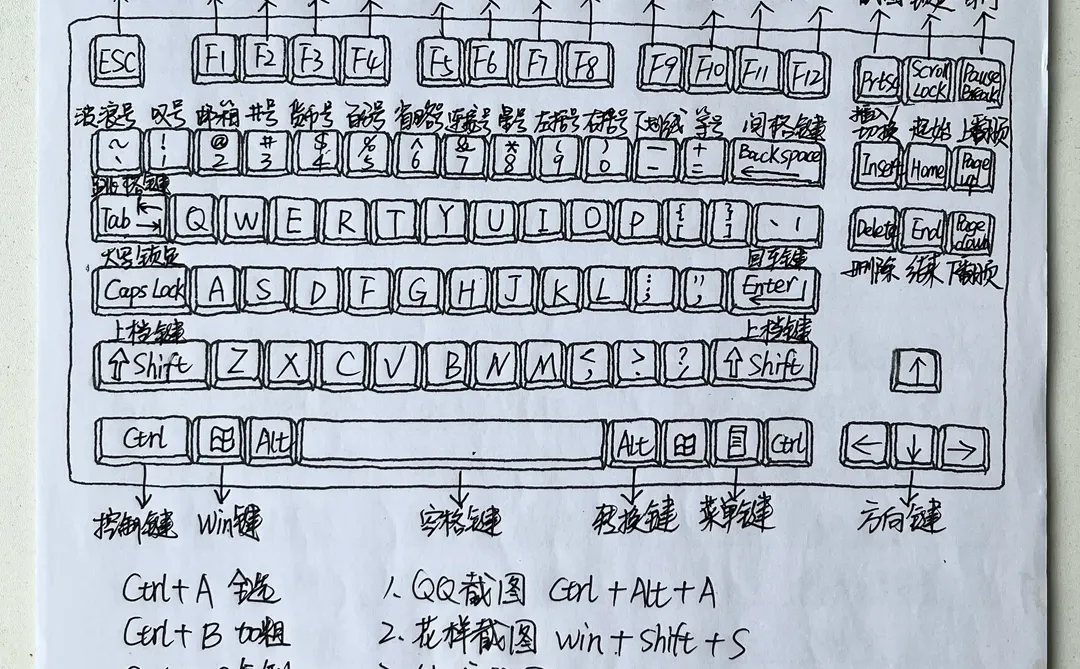 ESC F1 F2 F3 F4 F5 F6 F7 F8 F9 F10 F11 F12 Prtsc Scroll Lock Pause Break
波浪号 叹号 邮箱 井号 货币号 百分号 省略号 连接号 星号 左括号 右括号 下划线 等号 间格键 插入 切换 起始 上翻页
~ ` ! 1 @ 2 # 3 $ 4 % 5 ^ 6 & 7 * 8 ( 9 ) 0 — - + = Backspace ← Insert Home Page up
跳格键
Tab Q W E R T Y U I O P { [ } ] 、 | Delete End Page down
大写锁定 回车键 删除 结束 下翻页
Caps Lock A S D F G H J K L : ; " , Enter
上档键 上档键
⇧ Shift Z X C V B N M < , > . ? / ⇧ Shift ↑
Ctrl Alt Alt Ctrl ← ↓ →
控制键 Win键 空格键 转换键 菜单键 方向键
Ctrl+A 全选 1、QQ截图 Ctrl+Alt+A
Ctrl+B 加粗 2、花样截图 win+shift+S